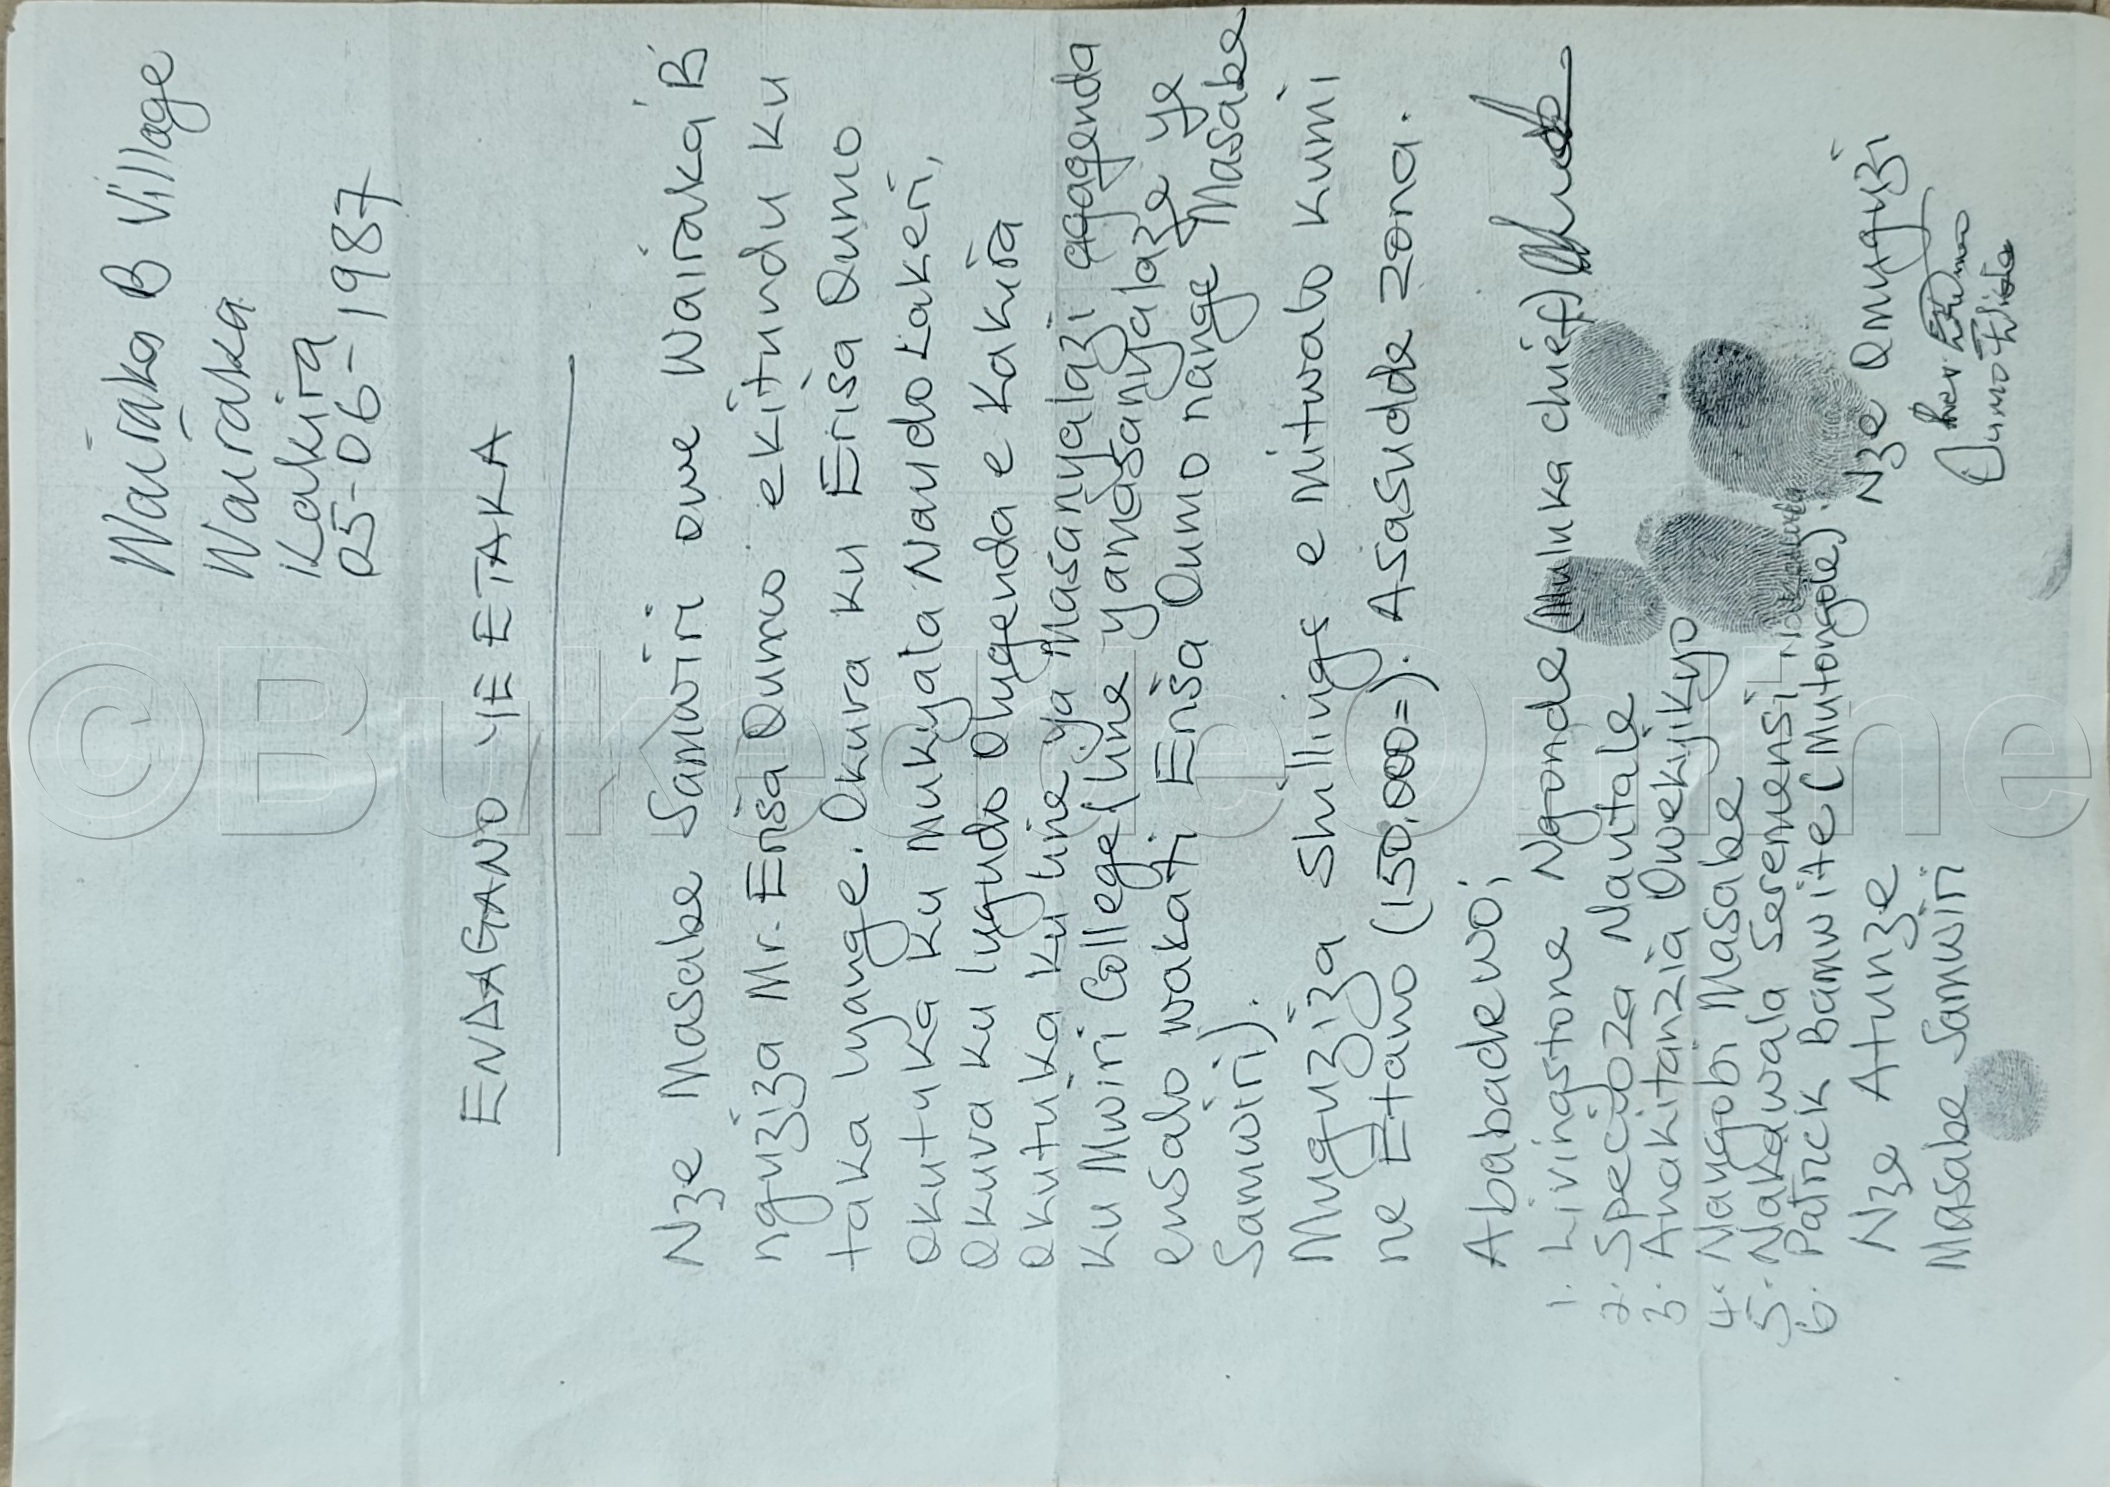 Wairaka B Village
Wairaka
Kakira
05-06-1987
ENDAGANO YE ETAKA
Nze Masabe Samwiri owe Wairaka B
nguziza Mr. Erisa Oumo ekitundu ku
taka lyange. Okuva ku Erisa Oumo
okutuka ku Mukyala Naudo Lakeri,
Okuva ku lugudo Olugenda e Kakira
Okutuka ku line ya Masanyalazi agagenda
ku Mwiri College (line yamasanyalaze ye
ensalo wakati Erisa Oumo nange Masabe
Samwiri).
Muguziza shillings e mitwalo kumi
ne Etano (150,000=). Asasudde zona.
Ababadewo;
1. Livingstone Ngonde (Muluka chief)
2. Specioza Nautale
3. Anakitanzia Owekyikyo
4. Nangobi Masabe
5. Nakadwala Seremensi
6. Patrick Bamwite (Mutongole).
Nze Atunze
Masabe Samwiri
Nze Omuguzi
Oumo
©BukeddeOnline